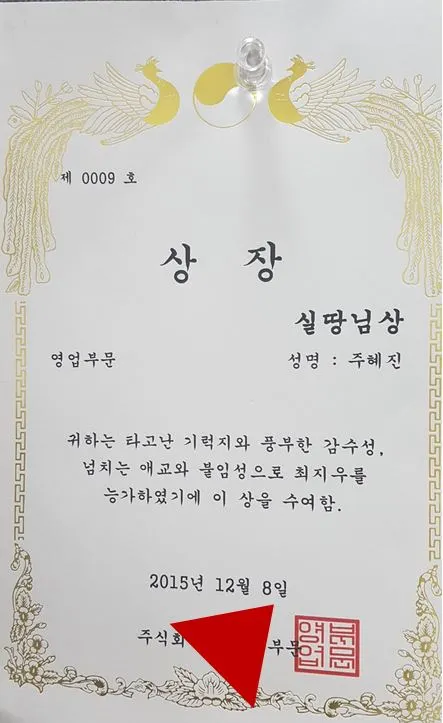 제 0009 호
상 장
실땅님상
영업부문 성명 : 주혜진
귀하는 타고난 기럭지와 풍부한 감수성,
넘치는 애교와 붙임성으로 최지우를
능가하였기에 이 상을 수여함.
2015년 12월 8일
주식회 부문